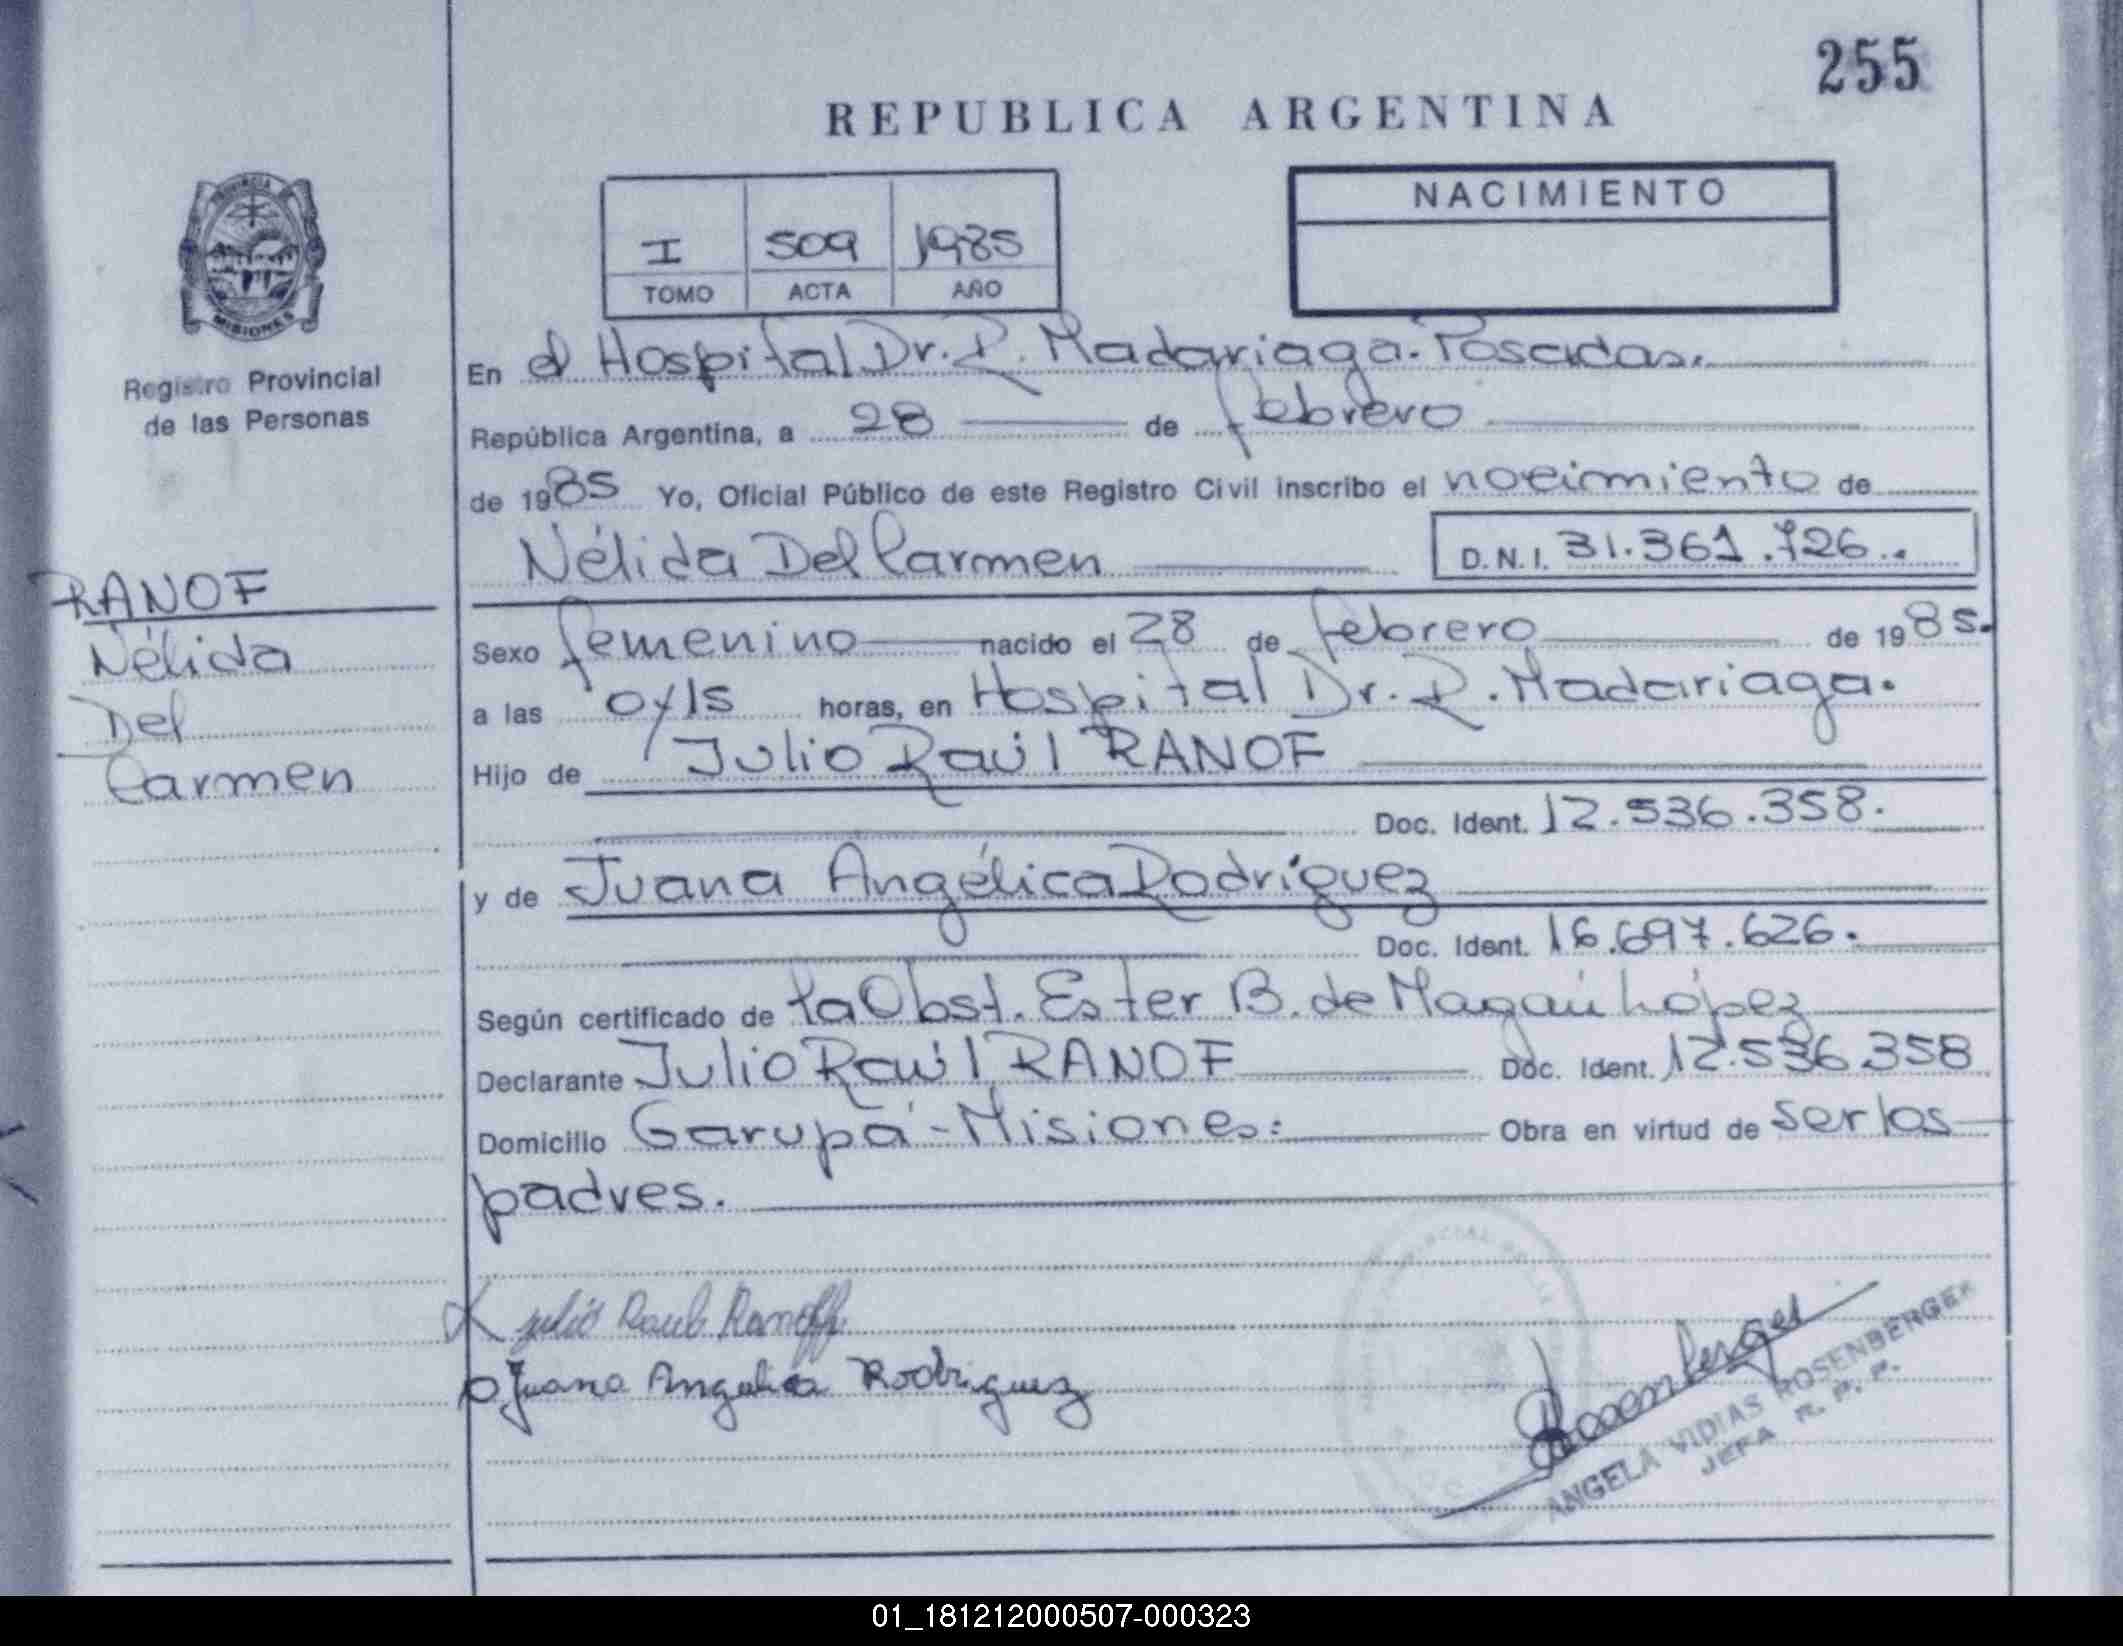 255
REPUBLICA ARGENTINA
NACIMIENTO
I 509 1985
TOMO ACTA AÑO
PROVINCIA
MISIONES
Registro Provincial
de las Personas
En el Hospital Dr. R. Madariaga. Posadas.
República Argentina, a 28 de febrero
de 1985 Yo, Oficial Público de este Registro Civil inscribo el nacimiento de
Nélida Del Carmen D.N.I. 31.361.726.
RANOF
Nélida
Del
Carmen
Sexo femenino nacido el 28 de febrero de 1985.
a las 0y15 horas, en Hospital Dr. R. Madariaga.
Hijo de Julio Raúl RANOF
Doc. Ident. 12.536.358.
y de Juana Angélica Rodríguez
Doc. Ident. 16.697.626.
Según certificado de la Obst. Ester B. de Magaú López
Declarante Julio Raúl RANOF Doc. Ident. 12.536.358
Domicilio Garupá - Misiones. Obra en virtud de ser los
padres.
Julio Raul Ranoff
Juana Angelica Rodriguez
Rosenberger
ANGELA VIDIAS ROSENBERGER
JEFA R. P. P.
01_181212000507-000323